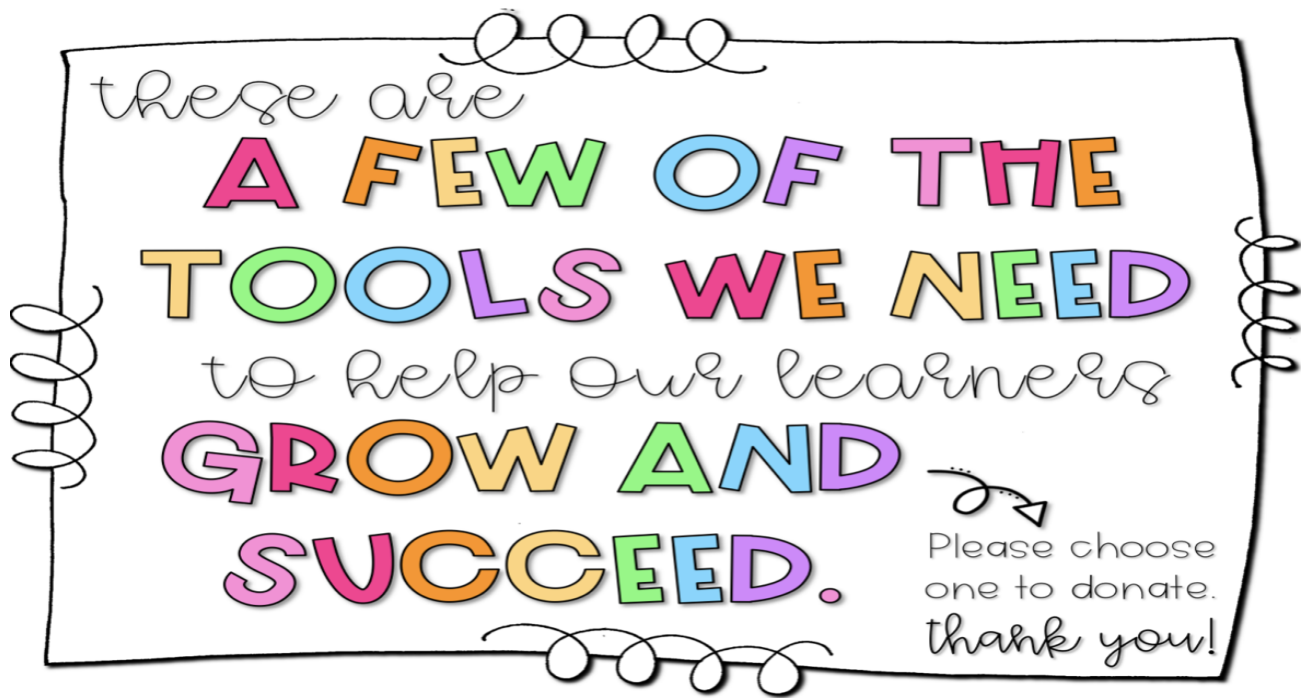 these are
A FEW OF THE
TOOLS WE NEED
to help our learners
GROW AND
SUCCEED.
Please choose
one to donate.
thank you!